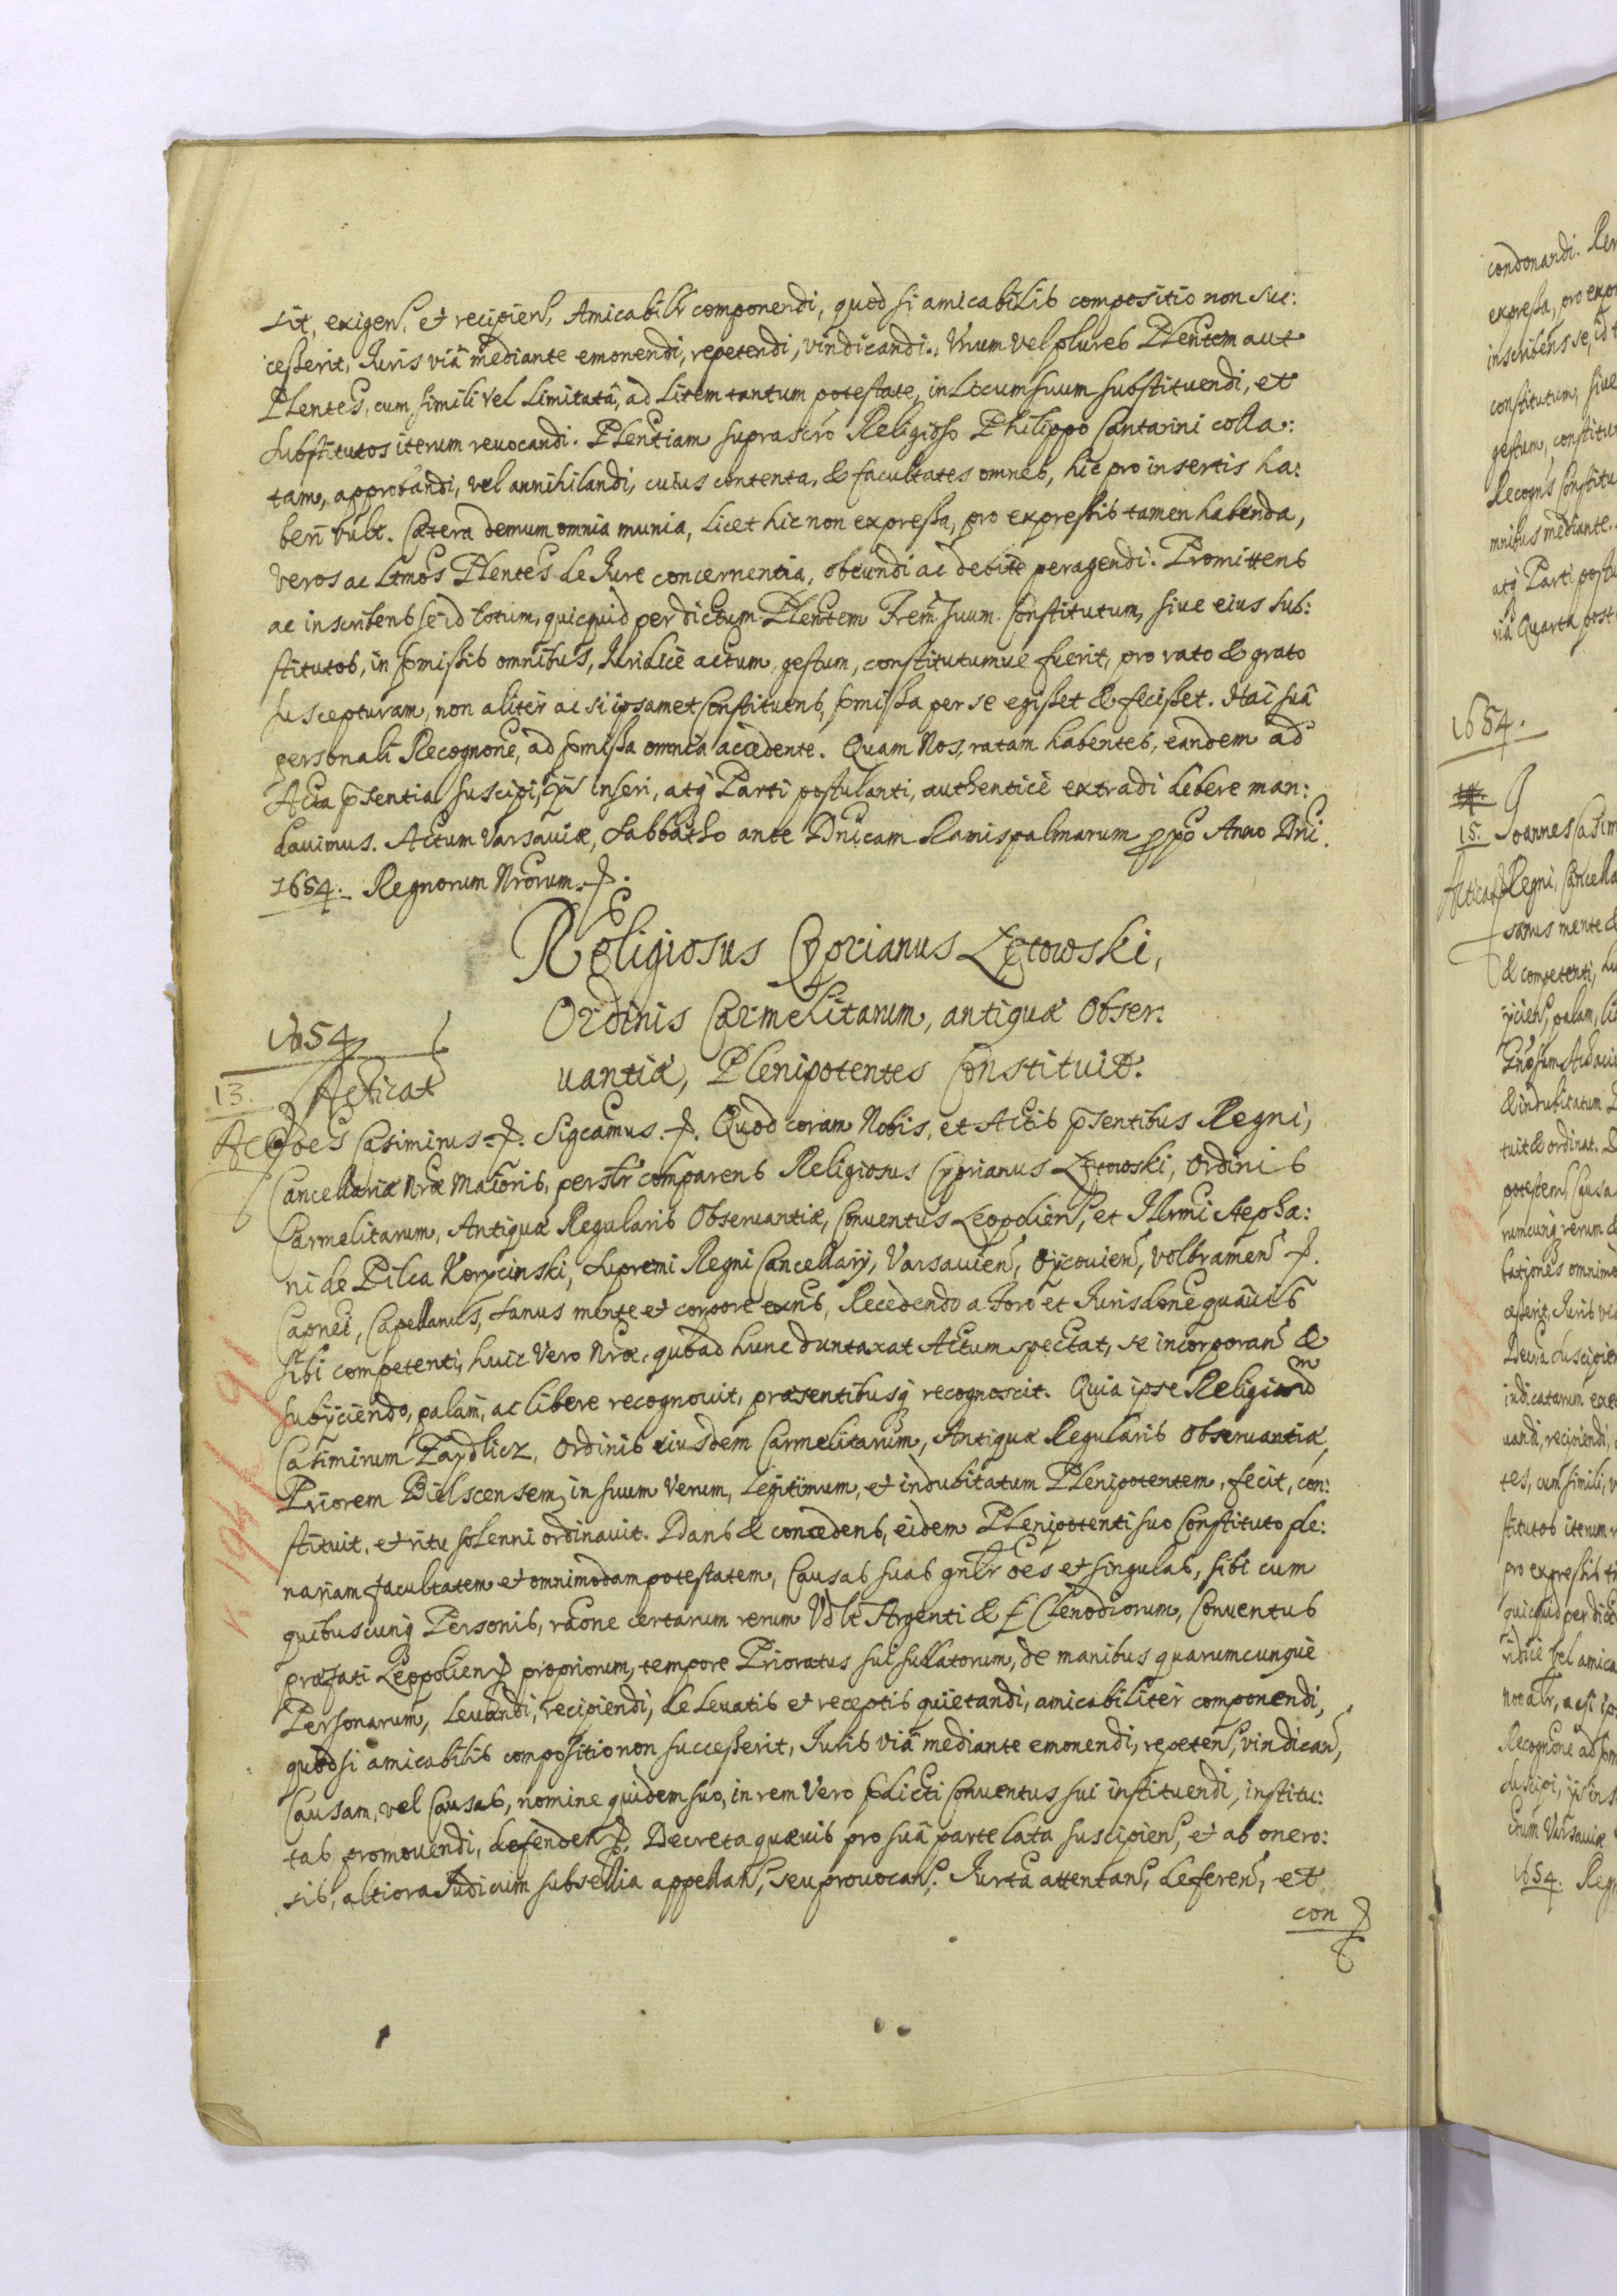 sit, exigen, et recipien, Amicabilr componendi, quòd si amicabilis compositio non suc:
cesserit, Iuris viâ mediante emonendi, repetendi, vindicandi. Vnum vel plures Plentem aut
Plentes, cum simili vel limitatâ, ad litem tantum potestate, in Locum suum substituendi, et
substitutos iterum reuocandi. Plentiam suprascro Religioso Philippo Cantarini colla:
tam, approbandi, vel annihilandi, cuius contenta, & facultates omnes, hic pro insertis ha:
beri vult. Cætera demum omnia munia, licet hic non expressa, pro expressis tamen habenda,
veros ac Ltmos Plentes de Iure concernentia, obeundi ac debitè peragendi. Promittens
ac inscribens se id totum, quicquid per dictum Plentem Frem suum Constitutum, siue eius sub:
stitutos, in pmissis omnibus, Iuridicè actum, gestum, constitutumue fuerit, pro rato & grato
suscepturam, non aliter ac si ipsamet Constituens, pmissa per se egisset & fecisset. Hac suâ
personali Recognone, ad pmissa omnia accedente. Quam Nos, ratam habentes, eandem ad
Acta psentia suscipi, ijs inseri, atq Parti postulanti, authenticè extradi debere man:
dauimus. Actum Varsauiæ, Sabbatho ante Dnicam Ramispalmarum ppo Anno Dni.
1654. Regnorum Nrorum.
Religiosus Cyprianus Lętowski,
Ordinis Carmelitarum, antiquæ Obser:
uantiæ, Plenipotentes Constituit.
1654
13. Acticat
Joes Casimirus. Sigcamus. Quod coram Nobis, et Actis psentibus Regni,
Cancellariæ Nræ Maioris, personlr comparens Religiosus Cyprianus Lętowski, Ordinis
Carmelitarum, Antiquæ Regularis Obseruantiæ, Conuentus Leopolien, et Illrmi Stepha:
ni de Pilca Korycinski, Supremi Regni Cancellarij, Varsauien, Oycouien, Volbramen
Capnei, Capellanus, sanus mente et corpore exns, Recedendo a Foro et Iurisdone quauis
sibi competenti, huic vero Nræ, quoad hunc duntaxat Actum spectat, se incorporan &
subijciendo, palam, ac libere recognouit, præsentibusq recognoscit. Quia ipse Religiosum
Casimirum Zaydlicz, Ordinis eiusdem Carmelitarum, Antiquæ Regularis Obseruantiæ,
Priorem Bielscensem, in suum Verum, Legitimum, et indubitatum Plenipotentem, fecit, con:
stituit, et ritu solenni ordinauit. Dans & concedens, eidem Plenipotenti suo Constituto ple:
nariam facultatem et omnimodam potestatem, Causas suas gnlr oes et singulas, sibi cum
quibuscunq Personis, raone certarum rerum Vdlt Argenti & Clenodiorum, Conuentus
præfati Leopolien propriorum, tempore Prioratus sui sullatorum, de manibus quarumcunque
Personarum, Leuandi, recipiendi, de Leuatis et receptis quietandi, amicabiliter componendi,
quòd si amicabilis compositio non successerit, Iuris viâ mediante emonendi, repeten, vindican,
Causam, vel Causas, nomine quidem suo, in rem Vero pdicti Conuentus sui instituendi, institu:
tas promouendi, defenden. Decreta quæuis pro suâ parte lata suscipien, et ab onero:
sis, altiora Iudicum subsellia appellan, seu prouocan. Iurta attentan, deferen, et
con
condonandi.
expressa, pro
inscribens se, id
constitutum, siue
gestum, constitu
Recogns Constitu
mnibus mediante.
atq Parti postu
ria Quarta post
1654.
15. Joannes Casim
Regni, Cancella
sanus mente &
& competenti, hu
palam, li
& indubitatum
tuit & ordinat.
potestem, Causa
rumcunq rerum &
omnimo
cesserit, Iuris via
suscipien
indicatarum
uandi, recipiendi,
tes, cum simili,
stitutos iterum
pro expressis
quicquid per dict
ridicè vel amica
Recognone ad pm
suscipi, ijs ins
ctum Varsauiæ
1654. Reg